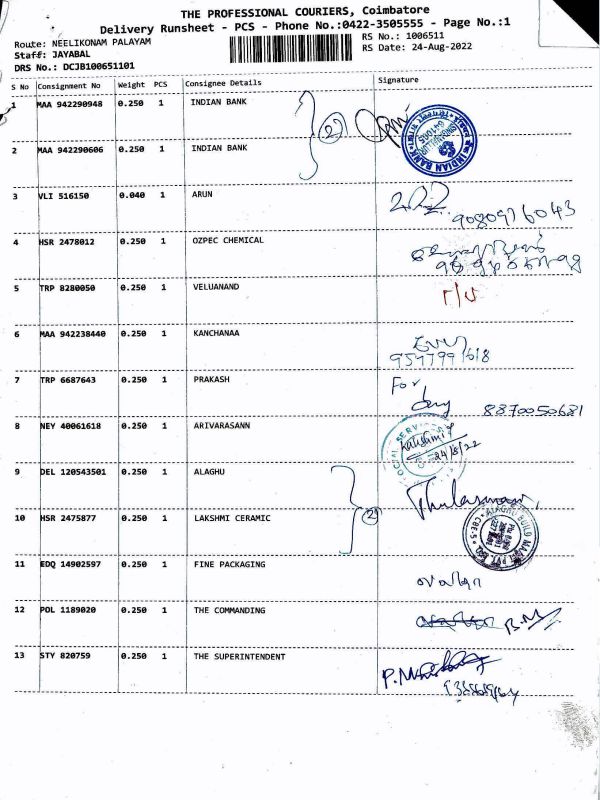 THE PROFESSIONAL COURIERS, Coimbatore
Delivery Runsheet - PCS - Phone No.:0422-3505555 - Page No.:1
Route: NEELIKONAM PALAYAM
Staff: JAYABAL
DRS No.: DCJB100651101
RS No.: 1006511
RS Date: 24-Aug-2022
S No Consignment No Weight PCS Consignee Details Signature
1 MAA 942290948 0.250 1 INDIAN BANK
(2)
INDIAN BANK
2 MAA 942290606 0.250 1 INDIAN BANK
3 VLI 516150 0.040 1 ARUN
9080976043
4 HSR 2478012 0.250 1 OZPEC CHEMICAL
5 TRP 8280050 0.250 1 VELUANAND
6 MAA 942238440 0.250 1 KANCHANAA
9547991618
7 TRP 6687643 0.250 1 PRAKASH For
8870050681
8 NEY 40061618 0.250 1 ARIVARASANN
24/8/22
9 DEL 120543501 0.250 1 ALAGHU
(2)
10 HSR 2475877 0.250 1 LAKSHMI CERAMIC
11 EDQ 14902597 0.250 1 FINE PACKAGING
12 POL 1189020 0.250 1 THE COMMANDING
13 STY 820759 0.250 1 THE SUPERINTENDENT